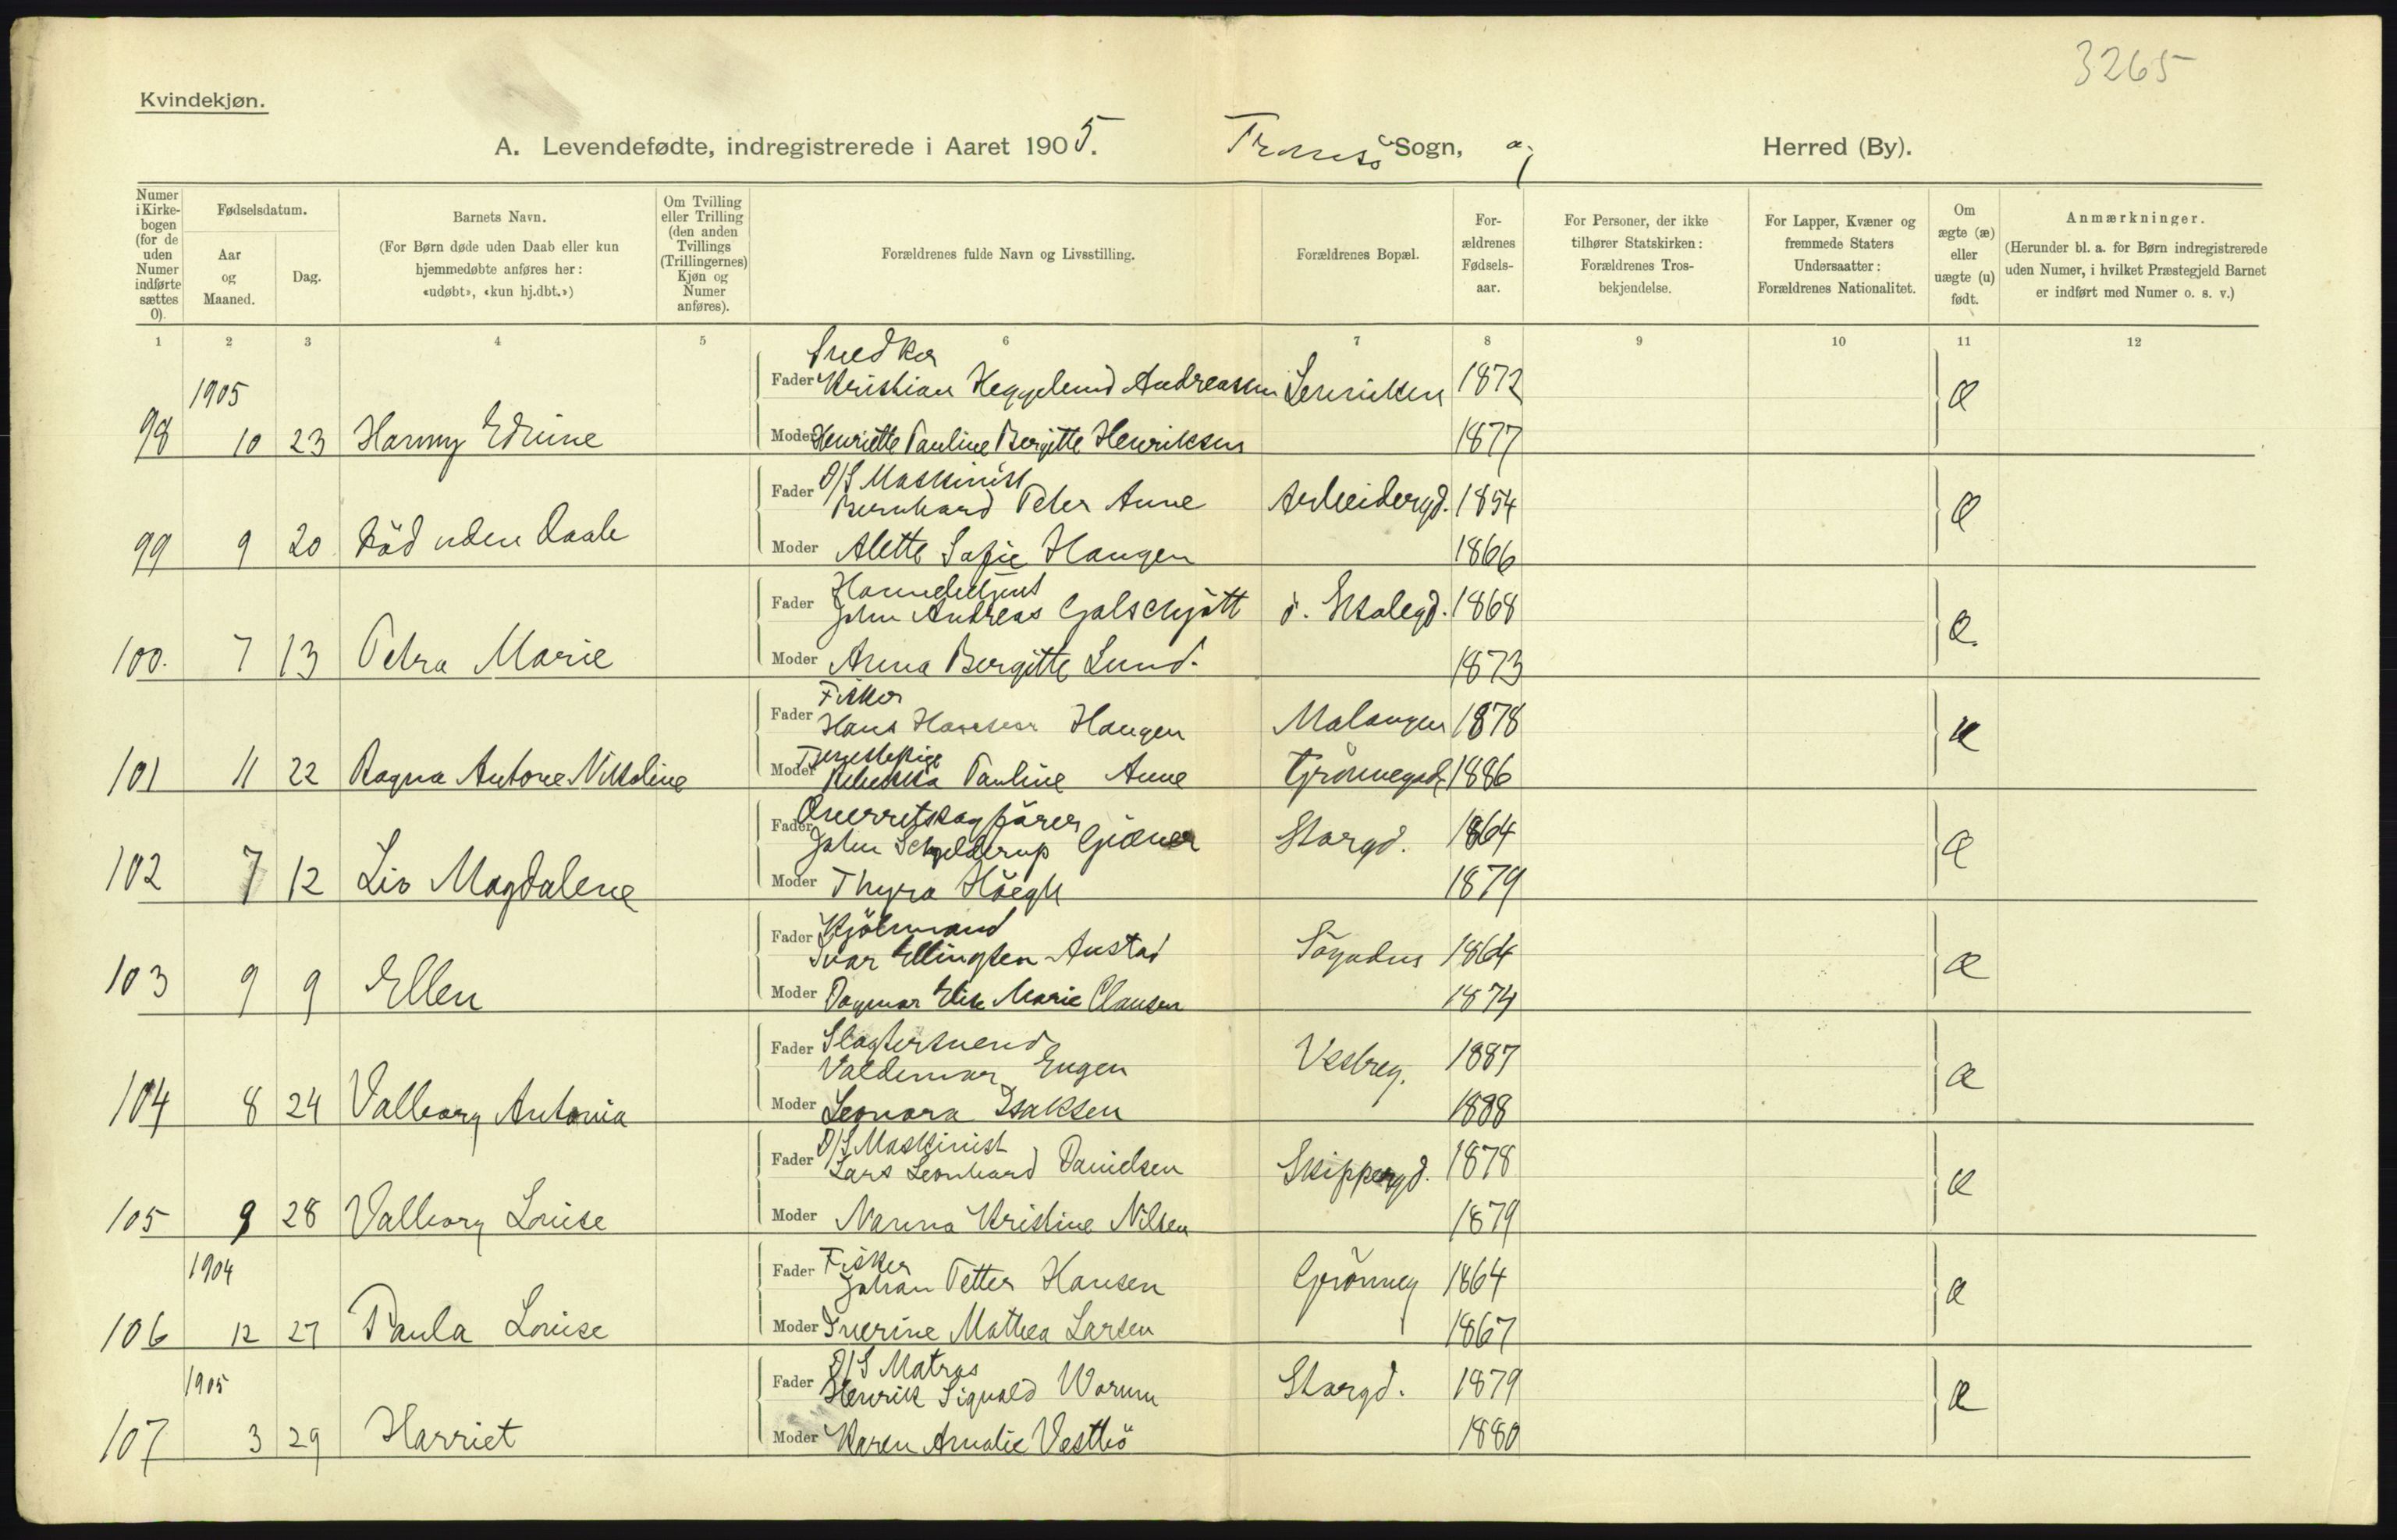 3265
Kvindekjøn.
A. Levendefødte, indregistrerede i Aaret 1905. Tromsø Sogn, og Herred (By).
Numer i Kirkebogen (for de uden Numer indførte sættes 0).
Fødselsdatum.
Aar og Maaned.
Dag.
Barnets Navn.
(For Børn døde uden Daab eller kun hjemmedøbte anføres her: «udøbt», «kun hj.dbt.»)
Om Tvilling eller Trilling (den anden Tvillings (Trillingernes) Kjøn og Numer anføres).
Forældrenes fulde Navn og Livsstilling.
Forældrenes Bopæl.
Forældrenes Fødselsaar.
For Personer, der ikke tilhører Statskirken: Forældrenes Trosbekjendelse.
For Lapper, Kvæner og fremmede Staters Undersaatter: Forældrenes Nationalitet.
Om ægte (æ) eller uægte (u) født.
Anmærkninger.
(Herunder bl. a. for Børn indregistrerede uden Numer, i hvilket Præstegjeld Barnet er indført med Numer o. s. v.)
1 2 3 4 5 6 7 8 9 10 11 12
Snedker
1905 Fader Kristian Heggelund Andreassen 1872 æ
98 10 23 Hanny Edvine Moder Henriette Pauline Bergitte Henriksen 1877
D/S Maskinist
Fader Bernhard Peter Aune Arbeidergd. 1854 æ
99 9 20 Död uden Daab Moder Alette Sofie Haugen 1866
Fader John Andreas Galschjött ö. Skolegd. 1868 æ
100. 7 13 Petra Marie Moder Anna Bergitte Lund. 1873
Fisker
Fader Hans Hansen Haugen Malangen 1878 u
Tjenestepige
101 11 22 Ragna Antone Nikoline Moder Rebekka Pauline Aune Grönnegade 1886
Overretssagförer
Fader John Schjelderup Giæver Storgd. 1864 æ
102 7 12 Liv Magdalene Moder Thyra Höegh 1879
Kjölmand
Fader Ivar Ellingsen Austad 1864 æ
103 9 9 Ellen Moder Dagmar Elise Marie Clausen 1874
Slagtersvend
Fader Valdemar Eugen Vestreg. 1887 æ
104 8 24 Valborg Antonia Moder Leonora Isaksen 1888
D/S Maskinist
Fader Lars Leonhard Danielsen Skippergd. 1878 æ
105 9 28 Valborg Louise Moder Nanna Kristine Nilsen 1879
Fisker
1904 Fader Johan Petter Hansen Grönneg 1864 æ
106 12 27 Paula Louise Moder Iverine Mathea Larsen 1867
D/S Matros
1905 Fader Henrik Sigvald Worum Storgd. 1879 æ
107 3 29 Harriet Moder Karen Amalie Vestbö 1880